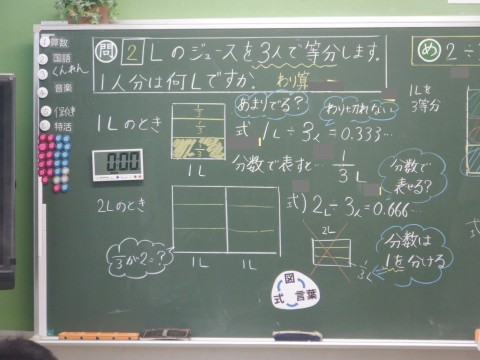 算数
国語
くんれん
音楽
特活
問 2 Lのジュースを3人で等分します。
1人分は何Lですか。 わり算
め 2÷
1Lのとき
1/3
1/3
1/3
1L
あまりでる?
わりきれない
1Lを
3等分
式 1L÷3人=0.333…
分数で表すと… 1/3 L
分数で
表せる?
000
2Lのとき
1/3が2=?
1L 1L
式) 2L÷3人=0.666…
2L
1/3L
分数は
1を分ける
図
式 言葉